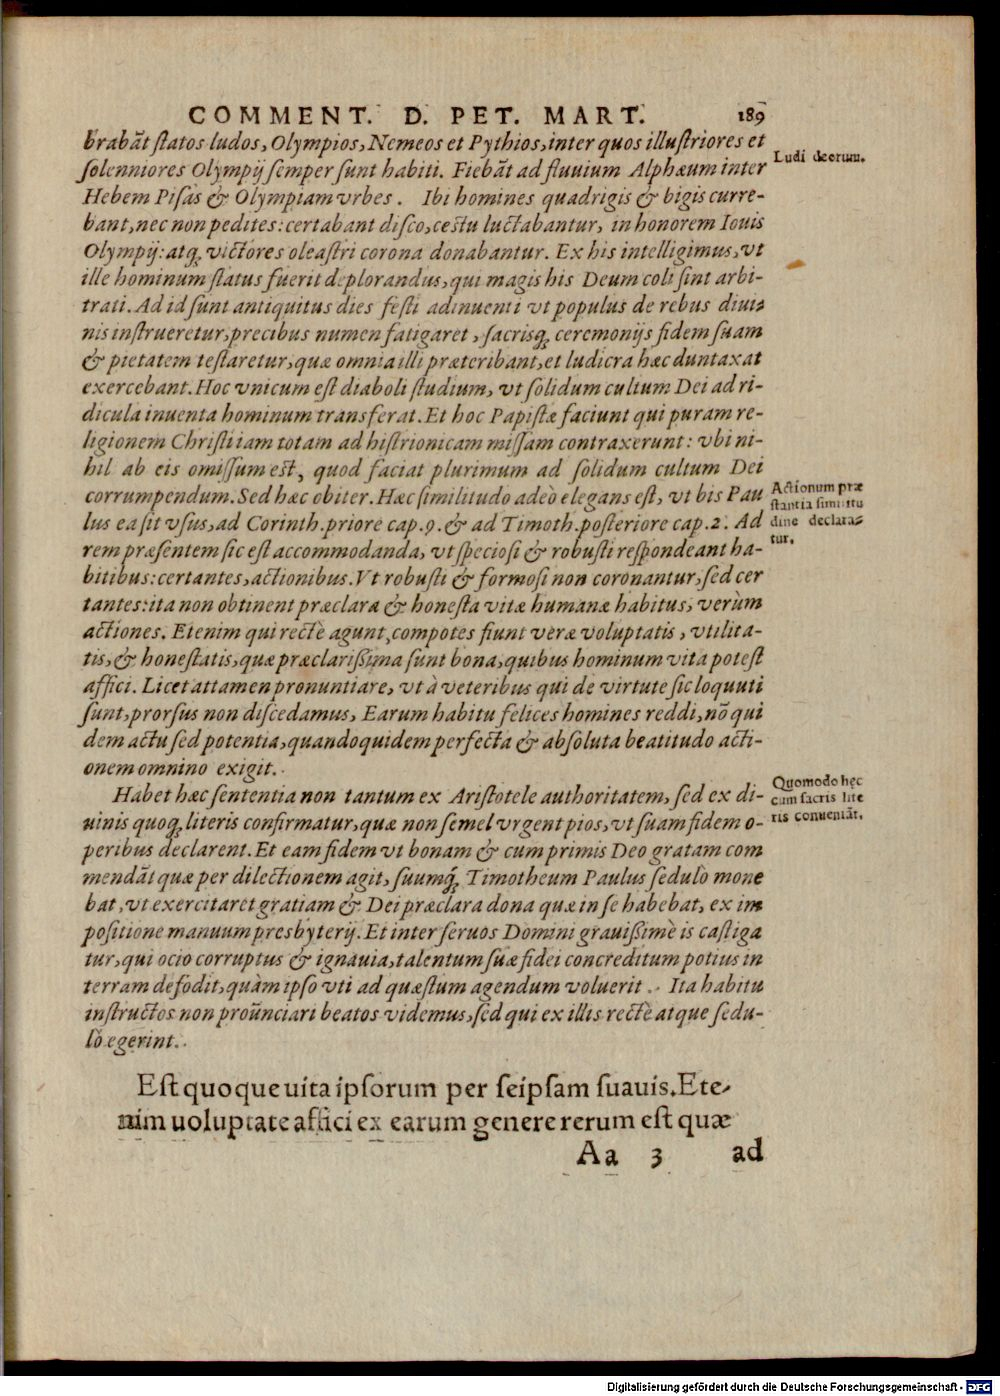 COMMENT. D. PET. MART. 189
brabāt statos ludos, Olympios, Nemeos et Pythios, inter quos illustriores et
solenniores Olympij semper sunt habiti. Fiebāt ad fluuium Alphæum inter
Ludi
Hebem Pisas & Olympiam vrbes. Ibi homines quadrigis & bigis curre-
bant, nec non pedites: certabant disco, cestu luctabantur, in honorem Iouis
Olympij: atq; victores oleastri corona donabantur. Ex his intelligimus, vt
ille hominum status fuerit deplorandus, qui magis his Deum coli sint arbi-
trati. Ad id sunt antiquitus dies festi adinuenti vt populus de rebus diui-
nis instrueretur, precibus numen fatigaret, sacrisq; ceremonijs fidem suam
& pietatem testaretur, quæ omnia illi præteribant, et ludicra hæc duntaxat
exercebant. Hoc vnicum est diaboli studium, vt solidum cultum Dei ad ri-
dicula inuenta hominum transferat. Et hoc Papistæ faciunt qui puram re-
ligionem Christi iam totam ad histrionicam missam contraxerunt: vbi ni-
hil ab eis omissum est, quod faciat plurimum ad solidum cultum Dei
corrumpendum. Sed hæc obiter. Hæc similitudo adeò elegans est, vt bis Pau
lus ea sit vsus, ad Corinth. priore cap. 9. & ad Timoth. posteriore cap. 2. Ad
rem præsentem sic est accommodanda, vt speciosi & robusti respondeant ha-
Actionum præ
stantia similitu
dine declara-
tur.
bitibus: certantes, actionibus. Vt robusti & formosi non coronantur, sed cer
tantes: ita non obtinent præclara & honesta vitæ humanæ habitus, verùm
actiones. Etenim qui rectè agunt, compotes fiunt veræ voluptatis, vtilita-
tis, & honestatis, quæ præclarissima sunt bona, quibus hominum vita potest
affici. Licet attamen pronuntiare, vt à veteribus qui de virtute sic loquuti
sunt, prorsus non discedamus, Earum habitu felices homines reddi, nō qui
dem actu sed potentia, quandoquidem perfecta & absoluta beatitudo acti-
onem omnino exigit.
Habet hæc sententia non tantum ex Aristotele authoritatem, sed ex di-
uinis quoq; literis confirmatur, quæ non semel vrgent pios, vt suam fidem o-
Quomodo hęc
cum sacris lite
ris conueniāt.
peribus declarent. Et eam fidem vt bonam & cum primis Deo gratam com
mendāt quæ per dilectionem agit, suumq; Timotheum Paulus sedulò mone
bat, vt exercitaret gratiam & Dei præclara dona quæ in se habebat, ex im
positione manuum presbyterij. Et inter seruos Domini grauissimè is castiga
tur, qui ocio corruptus & ignauia, talentum suæ fidei concreditum potius in
terram defodit, quàm ipso vti ad quæstum agendum voluerit. Ita habitu
instructos non proūnciari beatos videmus, sed qui ex illis rectè atque sedu-
lò egerint.
Est quoque uita ipsorum per seipsam suauis. Ete-
nim uoluptate affici ex earum genere rerum est quæ
Aa 3 ad
Digitalisierung gefördert durch die Deutsche Forschungsgemeinschaft - DFG